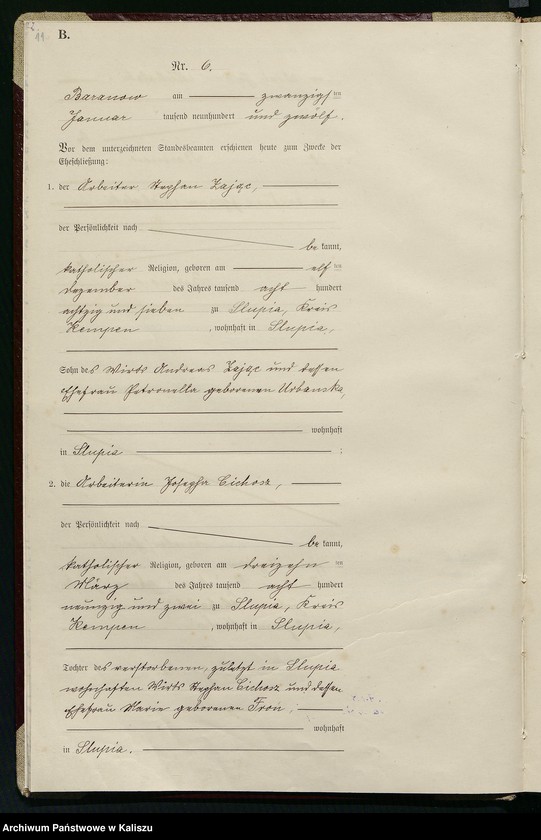 B.
Nr. 6.
Baranow am zwanzigsten
Januar tausend neunhundert und zwölf.
Vor dem unterzeichneten Standesbeamten erschienen heute zum Zwecke der
Eheschließung:
1. der Arbeiter Stephan Zając,
der Persönlichkeit nach
be kannt,
katholischer Religion, geboren am elf ten
Dezember des Jahres tausend acht hundert
achtzig und sieben zu Slupia, Kreis
Kempen , wohnhaft in Slupia,
Sohn des Wirts Andreas Zając und dessen
Ehefrau Petronella geborenen Urbanska,
wohnhaft
in Slupia ;
2. die Arbeiterin Josepha Cichosz,
der Persönlichkeit nach
be kannt,
katholischer Religion, geboren am dreizehn ten
März des Jahres tausend acht hundert
neunzig und zwei zu Slupia, Kreis
Kempen , wohnhaft in Slupia,
Tochter des verstorbenen, zuletzt in Slupia
wohnhaften Wirts Stephan Cichosz und dessen
Ehefrau Marie geborenen Froń,
wohnhaft
in Slupia.
Archiwum Państwowe w Kaliszu